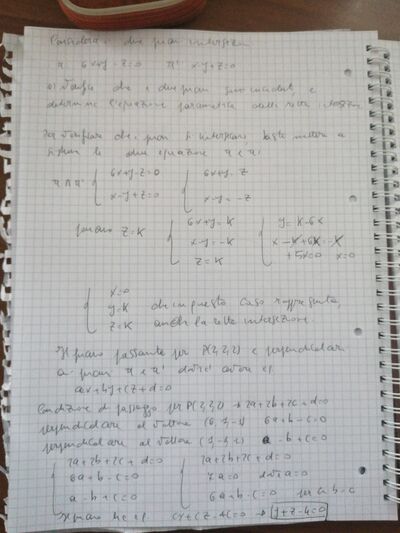 Considera i due piani intersezion
π 6x+y-z=0 π' x-y+z=0
a) Verifica che i due piani sono incidenti e
determina l'equazione parametrica della retta intersezione
Per verificare che i piani si intersecano, basta mettere a
sistema le due equazioni π e π'
π∩π' { 6x+y-z=0 { 6x+y=z
x-y+z=0 x-y=-z
poniamo z=k { 6x+y=k { y=k-6x
x-y=-k x-k+6x=-k
z=k +5x=0 x=0
{ x=0
y=k che in questo caso rappresenta
z=k anche la retta intersezione.
Il piano passante per P(2,2,2) e perpendicolare
ai piani π e π' dovrà avere eq.
ax+by+cz+d=0
Condizione di passaggio per P(2,2,2) → 2a+2b+2c+d=0
perpendicolare al vettore (6,1,-1) 6a+b-c=0
perpendicolare al vettore (1,-1,1) a-b+c=0
{ 2a+2b+2c+d=0 { 2a+2b+2c+d=0
6a+b-c=0 7a=0 a=0
a-b+c=0 6a+b-c=0 per cui b=c
Il piano ha eq. cy+cz-4c=0 → y+z-4=0